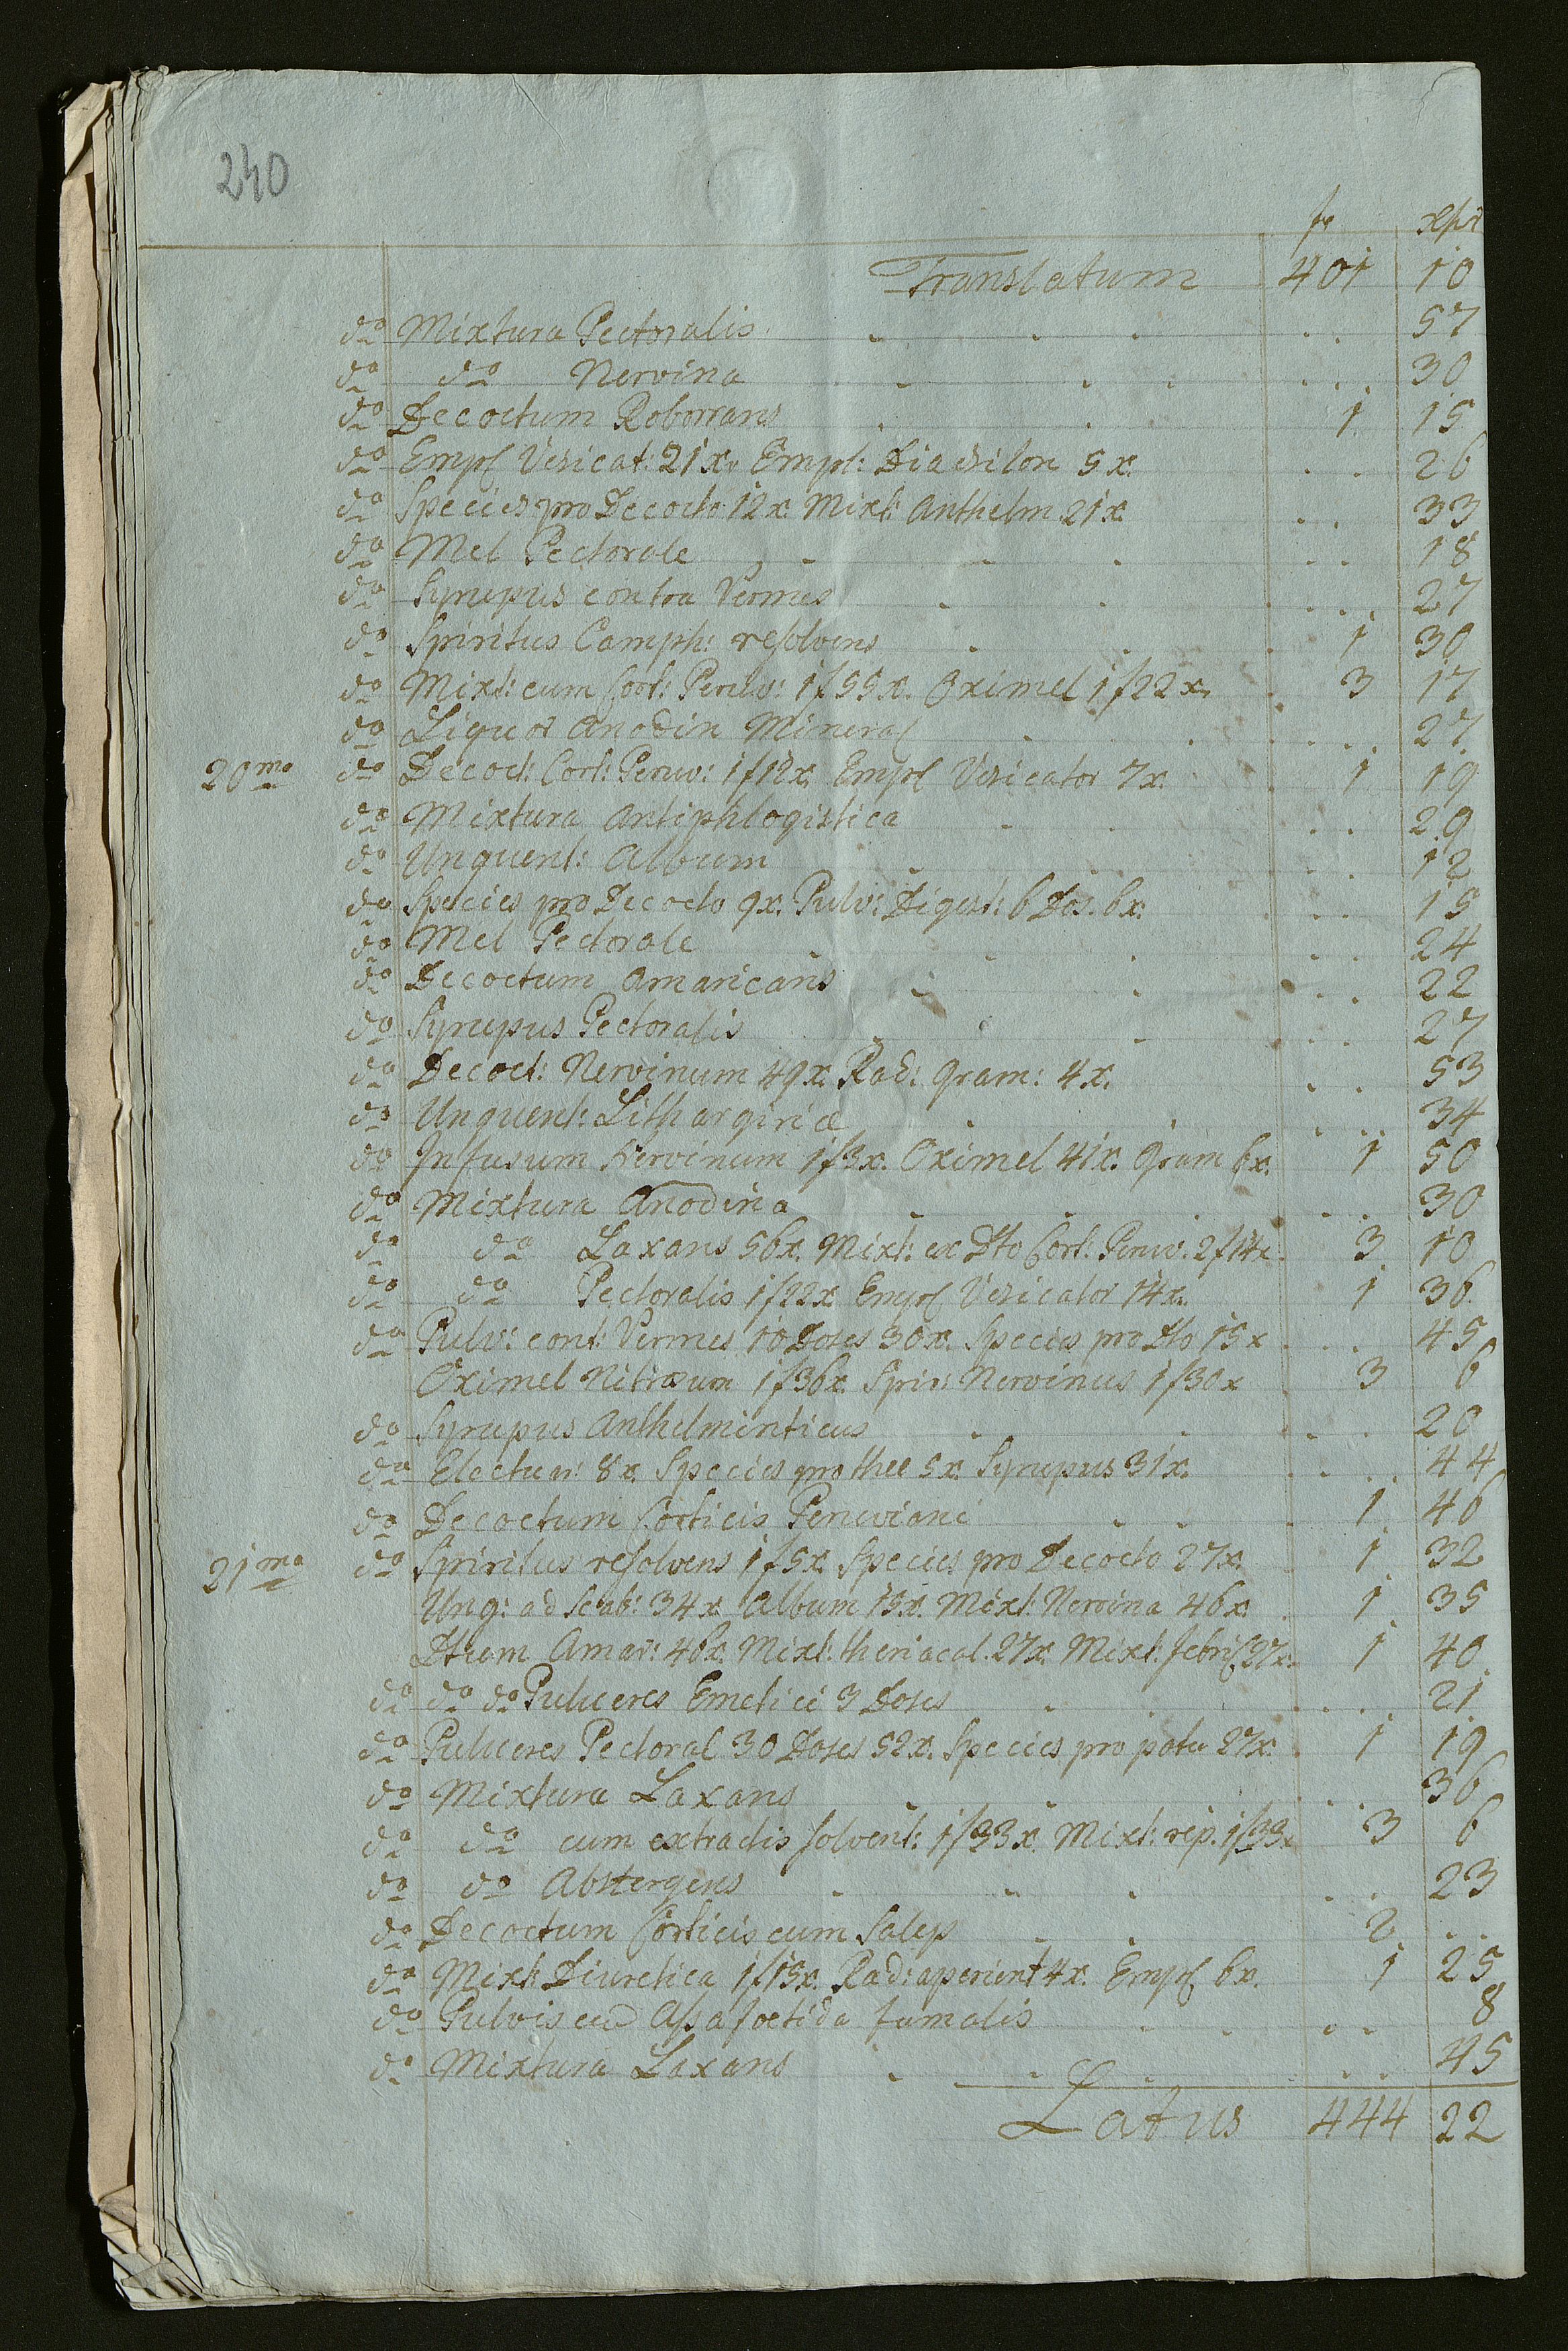 240
fr xpr
Translatum 401 10
do Mixtura Pectoralis . . . . . 57
do do Nervina . . . . . . 30
do Decoctum Roborans . . . 1 15
do Empl Vesicat: 21x. Empl: Diachilon 5x. . . 26
do Species pro Decocto 12x. Mixt: Anthelm 21x . . 33
do Mel Pectorale . . . . . 18
do Syrupus contra Vermes . . . . . 27
do Spiritus Camph: resolvens . . 1 30
do Mixt: cum Cort: Peruv: 1f55x. Oximel 1f22x. . 3 17
do Liquor Anodin Mineral . . . . . 27
20mo do Decoct: Cort: Peruv: 1f12x. Empl Vesicator 7x. . 1 19
do Mixtura Antiphlogistica . . . . 29
do Unguent: Album . . . . 12
do Species pro Decocto 9x. Pulv: Digest: 6 Dos. 6x. . . . 15
do Mel Pectorale . . . . . 24
do Decoctum Amaricans . . . . . 22
do Syrupus Pectoralis . . . . . 27
do Decoct: Nervinum 49x. Rad: Gram: 4x. . . 53
do Unguent: Lithargiriæ . . . . . 34
do Infusum Nervinum 1f3x. Oximel 41x. Gram 6x. 1 50
do Mixtura Anodina . . . . . . 30
do do Laxans 56x. Mixt: ex Dto Cort: Peruv: 2f14x. 3 10
do do Pectoralis 1f22x. Empl Vesicator 14x. 1 36
do Pulv: cont: Vermes 10 Doses 30x. Species pro Dto 15x . . . 45
Oximel Nitrosum 1f36x. Spir: Nervinus 1f30x . 3 6
do Syrupus Anthelminticus . . . . . 20
do Electuar: 8x. Species pro thee 5x. Syrupus 31x. . . . . 44
do Decoctum Corticis Peruviani . . . 1 46
21mo do Spiritus resolvens 1f5x. Species pro Decocto 27x. 1 32
Ung: ad Scab: 34x. Album 15x. Mixt: Nervina 46x. . 1 35
Dtum Amar: 46x. Mixt: theriacal. 27x. Mixt: febrif 27x. 1 40
do do do Pulveres Emetici 3 Doses . . . . . . 21
do Pulveres Pectoral 30 Doses 52x. Species pro potu 27x. . 1 19
do Mixtura Laxans . . . . . . 36
do do cum extractis solvent: 1f33x. Mixt: rep. 1f33x. 3 6
do do Abstergens . . . . . 23
do Decoctum Corticis cum Salep . . 2 . .
do Mixt: Diuretica 1f15x. Rad: aperient 4x. Empl 6x. 1 25
do Pulvis cum Assa foetida fumalis . . . . 8
do Mixtura Laxans . . . . . 45
Latus 444 22